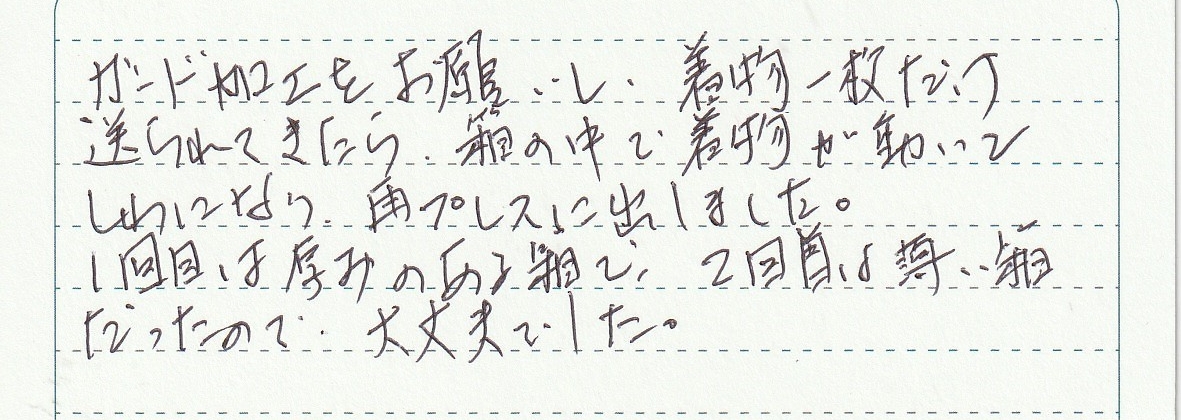 ガード加工をお願いし、着物一枚だけ
送られてきたら、箱の中で着物が動いて
しわになり、再プレスに出しました。
1回目は厚みのある箱で、2回目は薄い箱
だったので、大丈夫でした。